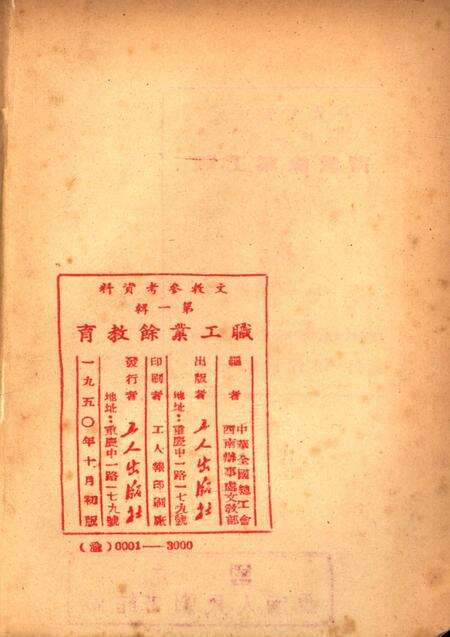 文教參考資料
第一輯
職工業餘教育
編者
中華全國總工會
西南辦事處文教部
出版者 工人出版社
地址：重慶中一路一七九號
印刷者 工人報印刷廠
發行者 工人出版社
地址：重慶中一路一七九號
一九五〇年十月初版
(渝)0001—3000